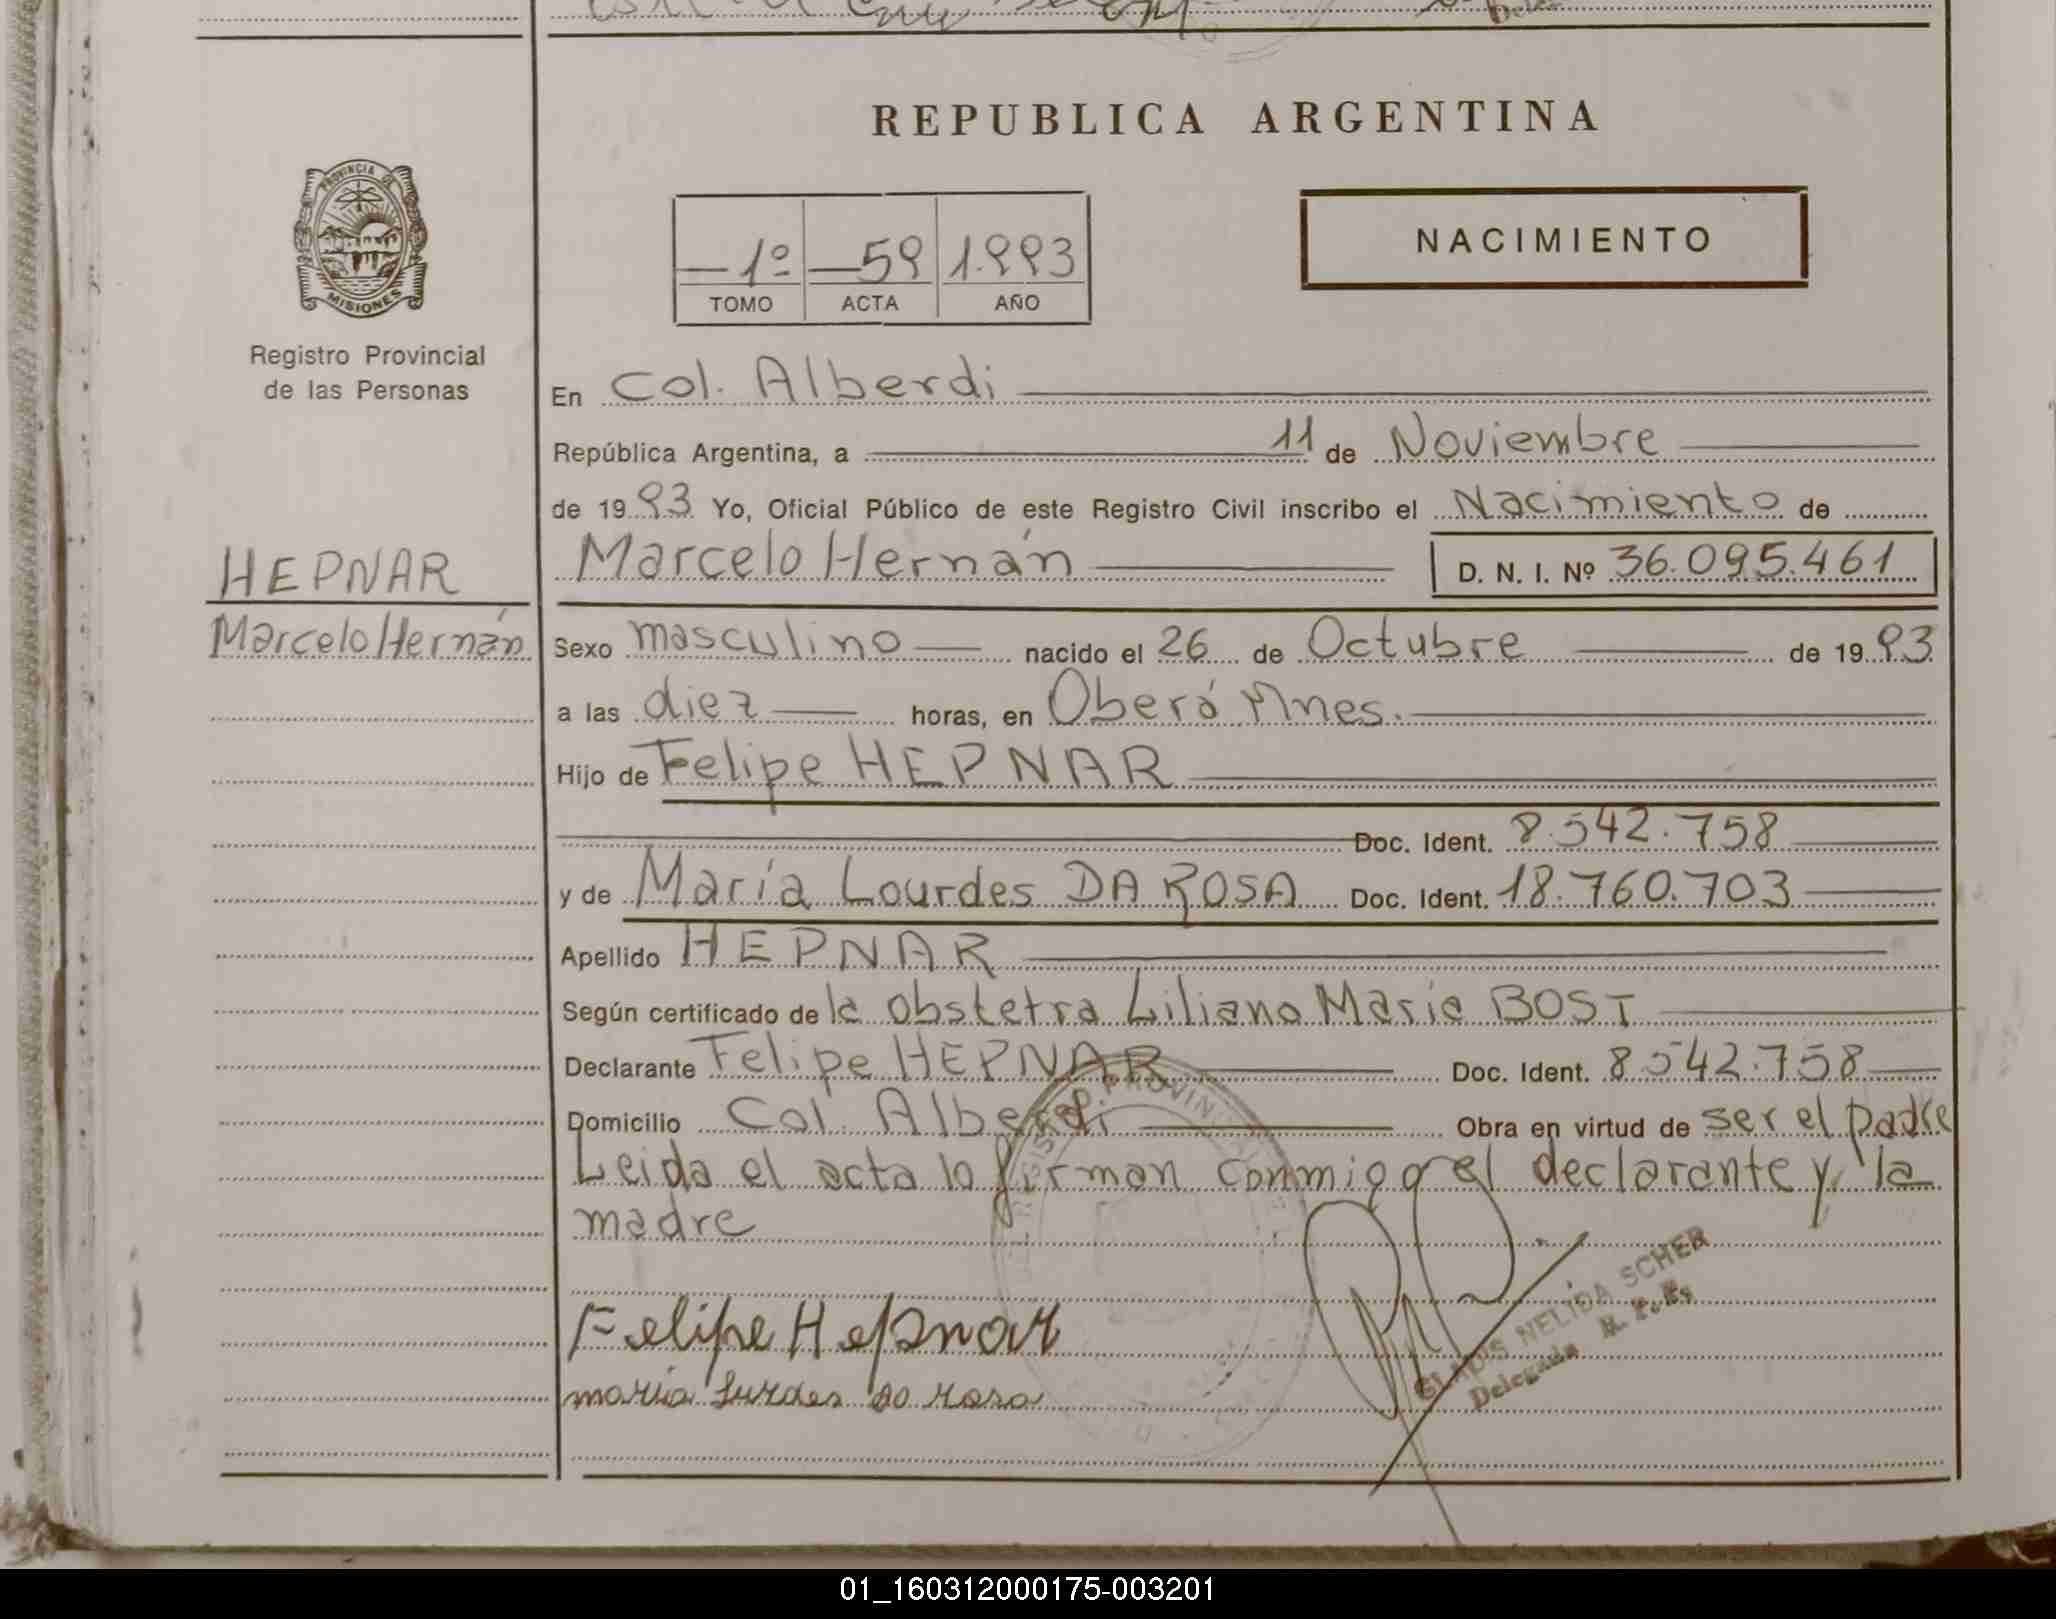 REPUBLICA ARGENTINA
PROVINCIA DE
MISIONES
Registro Provincial
de las Personas
NACIMIENTO
1º 59 1.993
TOMO ACTA AÑO
En Col. Alberdi
República Argentina, a 11 de Noviembre
de 1993 Yo, Oficial Público de este Registro Civil inscribo el Nacimiento de
HEPNAR
Marcelo Hernán
Marcelo Hernán D. N. I. Nº 36.095.461
Sexo masculino nacido el 26 de Octubre de 1993
a las diez horas, en Oberá Mnes.
Hijo de Felipe HEPNAR
Doc. Ident. 8.542.758
y de María Lourdes DA ROSA Doc. Ident. 18.760.703
Apellido HEPNAR
Según certificado de la obstetra Liliana Maria BOST
Declarante Felipe HEPNAR Doc. Ident. 8542.758
Domicilio Col. Alberdi Obra en virtud de ser el padre
Leida el acta lo firman conmigo el declarante y la
madre
Felipe Hepnar
maria Lurdes Da rosa
GLADIS NELIDA SCHER
Delegada R. P. Ps
01_160312000175-003201